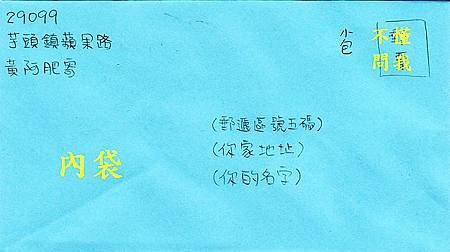 29099
芋頭鎮蘋果路
黃阿肥寄
小包
不懂
問我
(郵遞區號五碼)
(你家地址)
(你的名字)
內袋